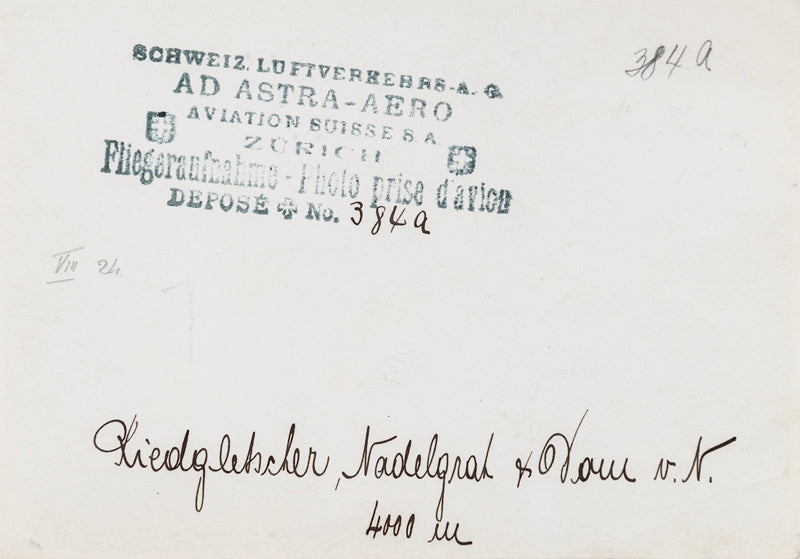 384a
SCHWEIZ. LUFTVERKEHRS-A.G.
AD ASTRA-AERO
AVIATION SUISSE S.A.
ZÜRICH
Fliegeraufnahme - Photo prise d'avion
DEPOSÉ No. 384a
VIII 24.
Riedgletscher, Nadelgrat & Dom v. N.
4000 m